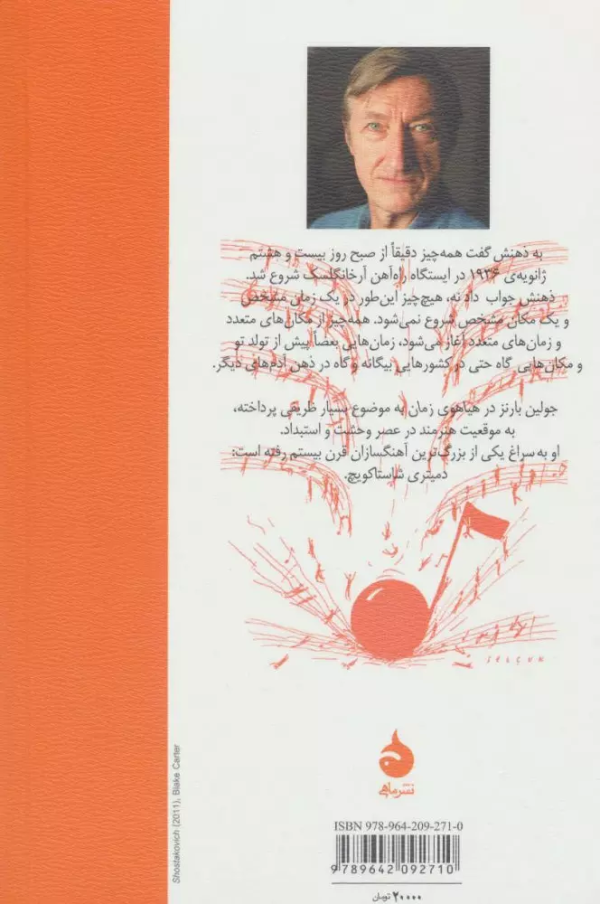 به ذهنش گفت همه‌چیز دقیقاً از صبح روز بیست و هشتم
ژانویه‌ی ۱۹۳۶ در ایستگاه راه‌آهن آرخانگلسک شروع شد.
ذهنش جواب داد نه، هیچ‌چیز این‌طور در یک زمان مشخص
و یک مکان مشخص شروع نمی‌شود. همه‌چیز از مکان‌های متعدد
و زمان‌های متعدد آغاز می‌شود، زمان‌هایی بعضاً پیش از تولد تو
و مکان‌هایی گاه حتی در کشورهایی بیگانه و گاه در ذهن آدم‌های دیگر.
جولین بارنز در هیاهوی زمان به موضوع بسیار ظریفی پرداخته،
به موقعیت هنرمند در عصر وحشت و استبداد.
او به سراغ یکی از بزرگ‌ترین آهنگسازان قرن بیستم رفته است:
دمیتری شاستاکویچ.
SELÇUK
Shostakovich (2011), Blake Carter
نشر ماهی
ISBN 978-964-209-271-0
9789642092710
۲۰۰۰۰ تومان